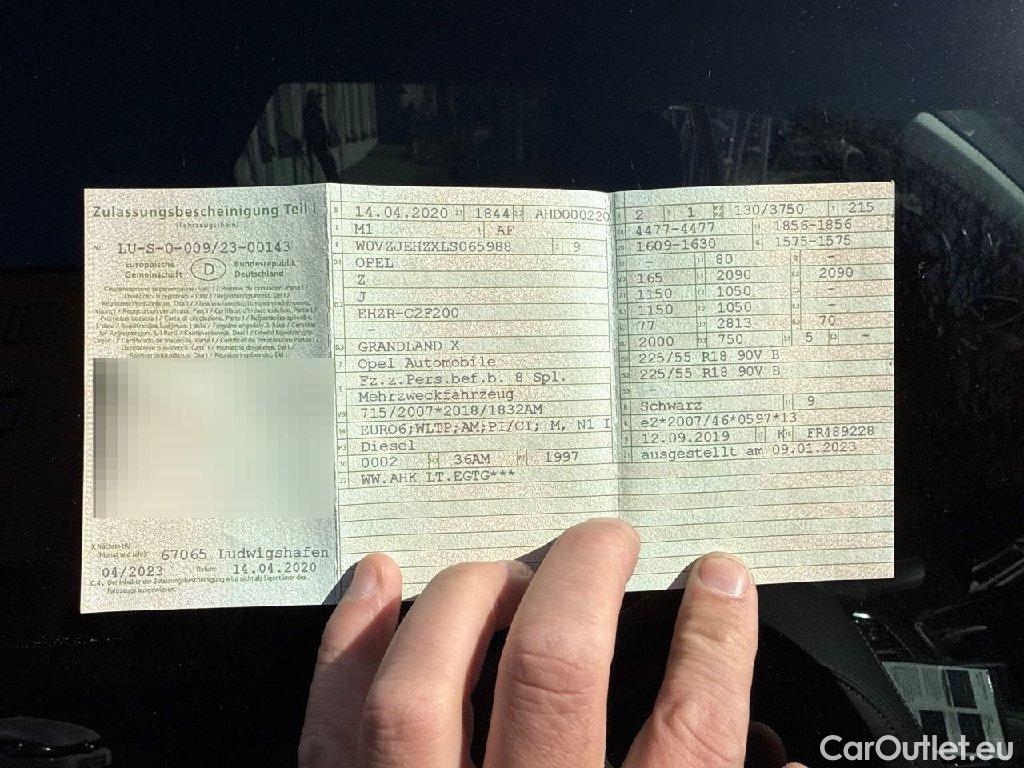 Zulassungsbescheinigung Teil I
(Fahrzeugschein)
Nr. LU-S-0-009/23-00143
Europäische Gemeinschaft D Bundesrepublik Deutschland
67065 Ludwigshafen
04/2023 Datum: 14.04.2020
C.4c Der Inhaber der Zulassungsbescheinigung wird nicht als Eigentümer des
Fahrzeugs ausgewiesen.
14.04.2020 1844 AHD000220
M1 AF
W0VZJEHZXLS065988 9
OPEL
Z
J
EHZR-C2F200
-
GRANDLAND X
Opel Automobile
Fz.z.Pers.bef.b. 8 Spl.
Mehrzweckfahrzeug
715/2007*2018/1832AM
EURO6;WLTP;AM;PI/CI; M, N1 I
Diesel
0002 36AM 1997
WW.AHK LT.EGTG***
2 1 130/3750 215
4477-4477 1856-1856
1609-1630 1575-1575
- 80 -
165 2090 2090
1150 1050 -
1150 1050 -
77 2813 70
2000 750 5 -
225/55 R18 90V B
225/55 R18 90V B
-
Schwarz 9
e2*2007/46*0597*13
12.09.2019 K FR489228
ausgestellt am 09.01.2023
CarOutlet.eu